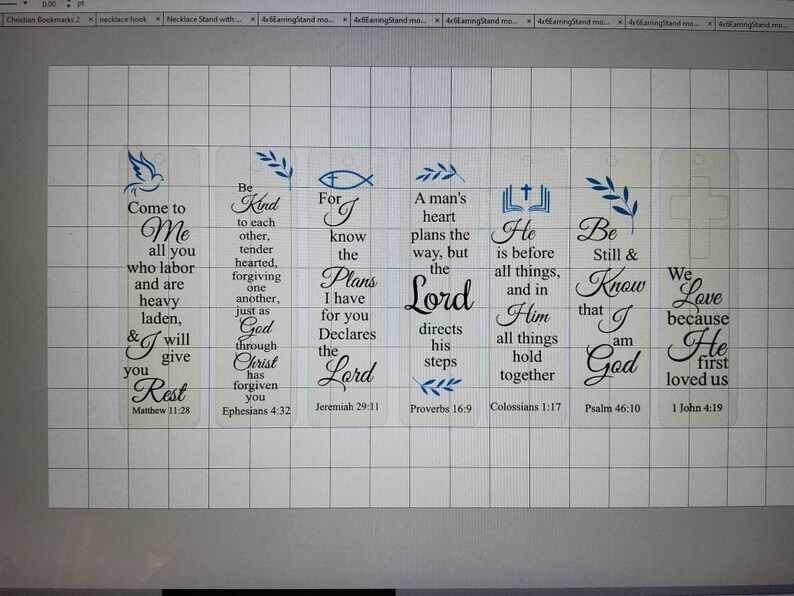 0.00 pt
Christian Bookmarks 2 × necklace hook × Necklace Stand with ... × 4x6EarringStand mo... × 4x6EarringStand mo... × 4x6EarringStand mo... × 4x6EarringStand mo... × 4x6EarringStand mo... × 4x6EarringStand mo...
Come to
Me
all you
who labor
and are
heavy
laden,
& I will
give
you
Rest
Matthew 11:28
Be
Kind
to each
other,
tender
hearted,
forgiving
one
another,
just as
God
through
Christ
has
forgiven
you
Ephesians 4:32
For
I
know
the
Plans
I have
for you
Declares
the
Lord
Jeremiah 29:11
A man's
heart
plans the
way, but
the
Lord
directs
his
steps
Proverbs 16:9
He
is before
all things,
and in
Him
all things
hold
together
Colossians 1:17
Be
Still &
Know
that I
am
God
Psalm 46:10
We
Love
because
He
first
loved us
1 John 4:19